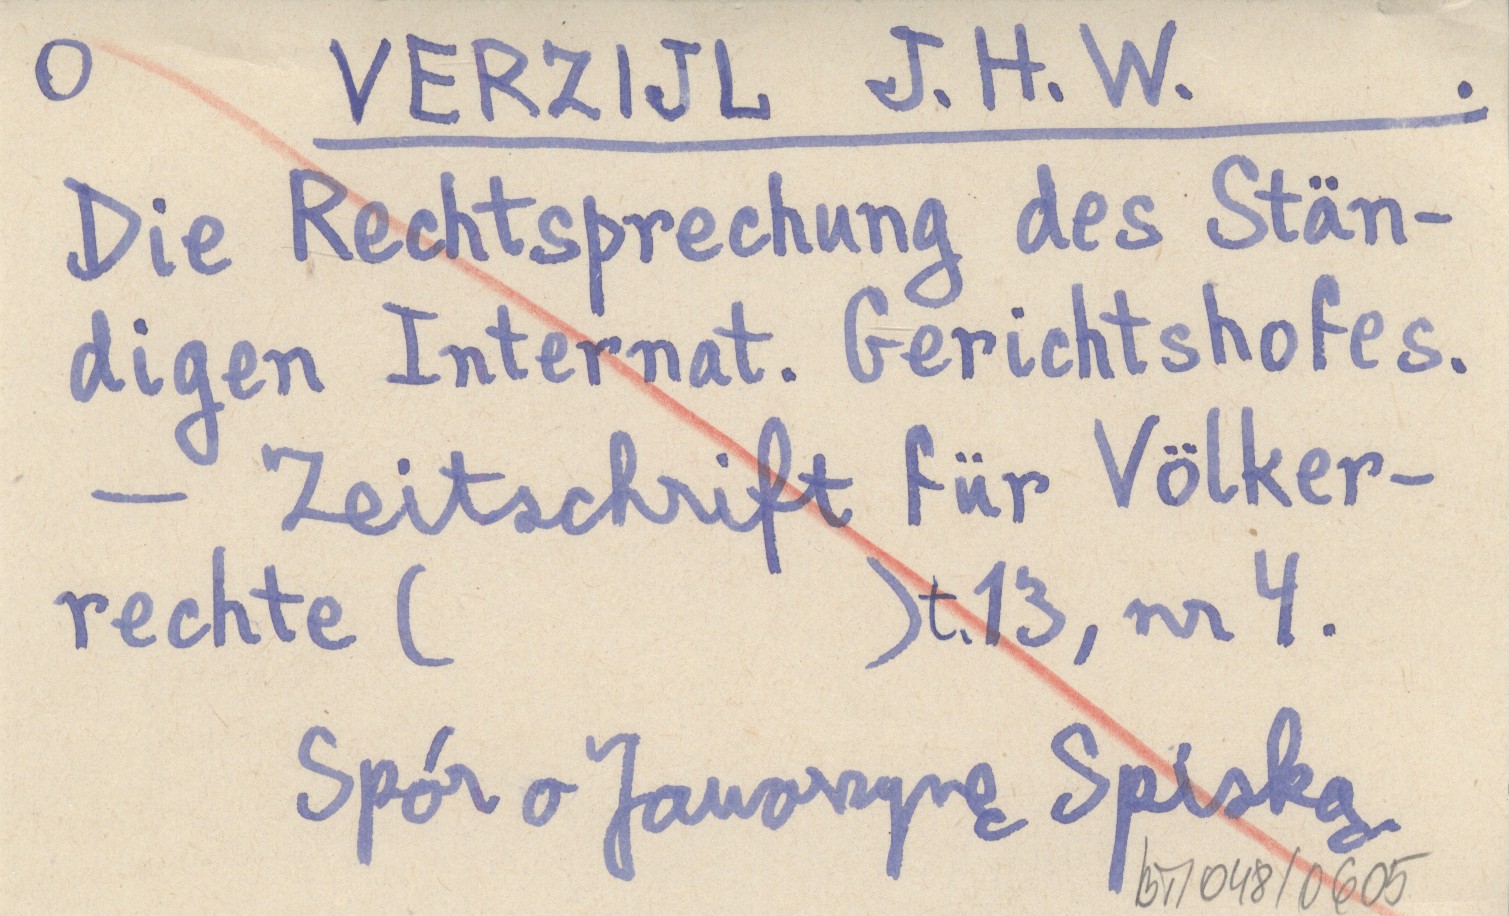 O VERZIJL J. H. W. .
Die Rechtsprechung des Stän-
digen Internat. Gerichtshofes.
— Zeitschrift für Völker-
rechte ( ) t. 13, nr 4.
Spór o Jaworzynę Spiską
BT/048/0605